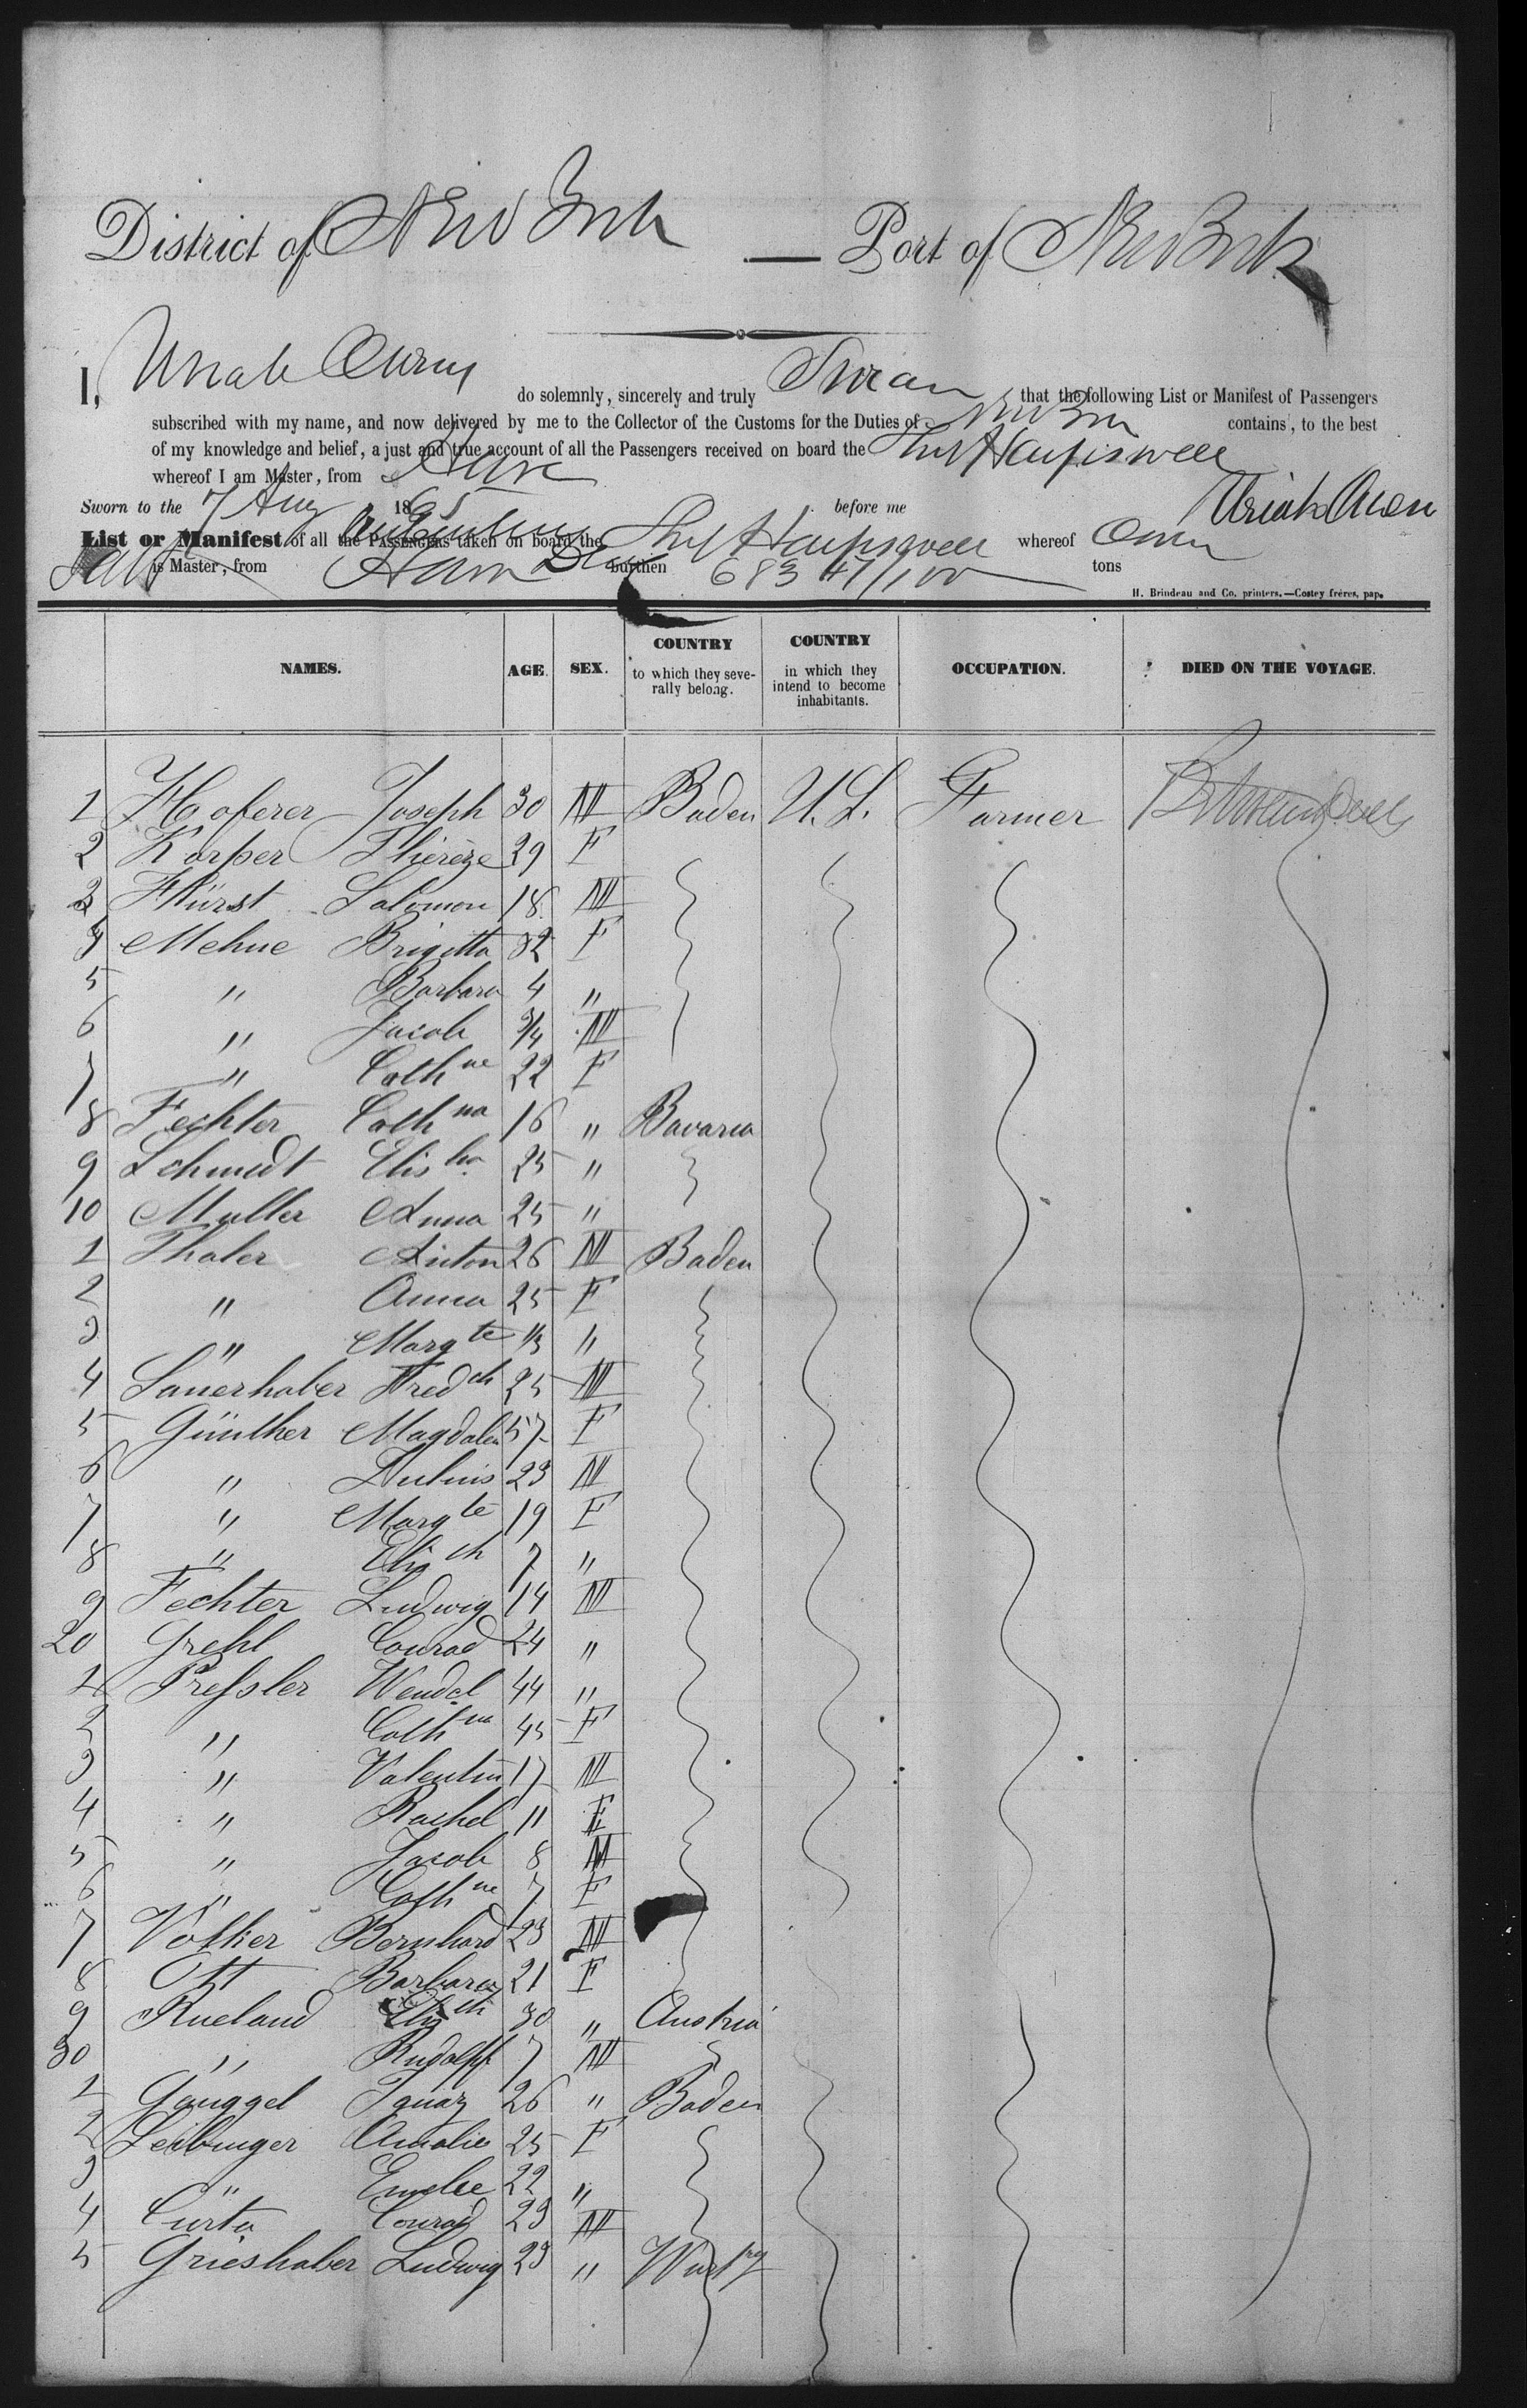 District of New York — Port of New York
I, Uriah Owen do solemnly, sincerely and truly Swear that the following List or Manifest of Passengers
subscribed with my name, and now delivered by me to the Collector of the Customs for the Duties of New York contains, to the best
of my knowledge and belief, a just and true account of all the Passengers received on board the Ship Harpswell
whereof I am Master, from Havre
Sworn to the 7 Aug 1865 before me Uriah Owen
List or Manifest of all the PASSENGERS taken on board the Ship Harpswell whereof Owen
is Master, from Havre burthen 683 47/100 tons
H. Brindeau and Co. printers.—Costey frères, pap.
NAMES. AGE. SEX. COUNTRY to which they severally belong. COUNTRY in which they intend to become inhabitants. OCCUPATION. DIED ON THE VOYAGE.
1 Hoferer Joseph 30 M Baden U.S. Farmer
2 Karper Thérèze 29 F
3 Fürst Salomon 18 M
4 Mehne Brigitta 32 F
5 " Barbara 4 "
6 " Jacob 3/4 M
7 " Cath ne 22 F
8 Fechter Cath na 16 " Bavaria
9 Schmidt Elis ba 25 "
10 Muller Anna 25 "
1 Thaler Anton 26 M Baden
2 " Anna 25 F
3 " Marg te 1/3 "
4 Sauerhaber Fred ch 25 M
5 Günther Magdalen 57 F
6 " 23 M
7 " Marg te 19 F
8 " Elis th 7 "
9 Fechter Ludwig 14 M
20 Grehl Conrad 24 "
1 Pressler Wendel 44 "
2 " Cath na 45 F
3 " Valentin 17 M
4 " Rachel 11 F
5 " Jacob 8 M
6 " Cath ne 7 F
7 Volker Bernhard 23 M
8 Ott Barbara 21 F
9 Rueland Elis th 30 " Austria
30 " Rudolff 7 M
1 Ganggel Ignaz 26 " Baden
2 Leibinger Amalie 25 F
3 " Emelie 22 "
4 Curta Conrad 23 M
5 Grieshaber Ludwig 23 " Wurt rg